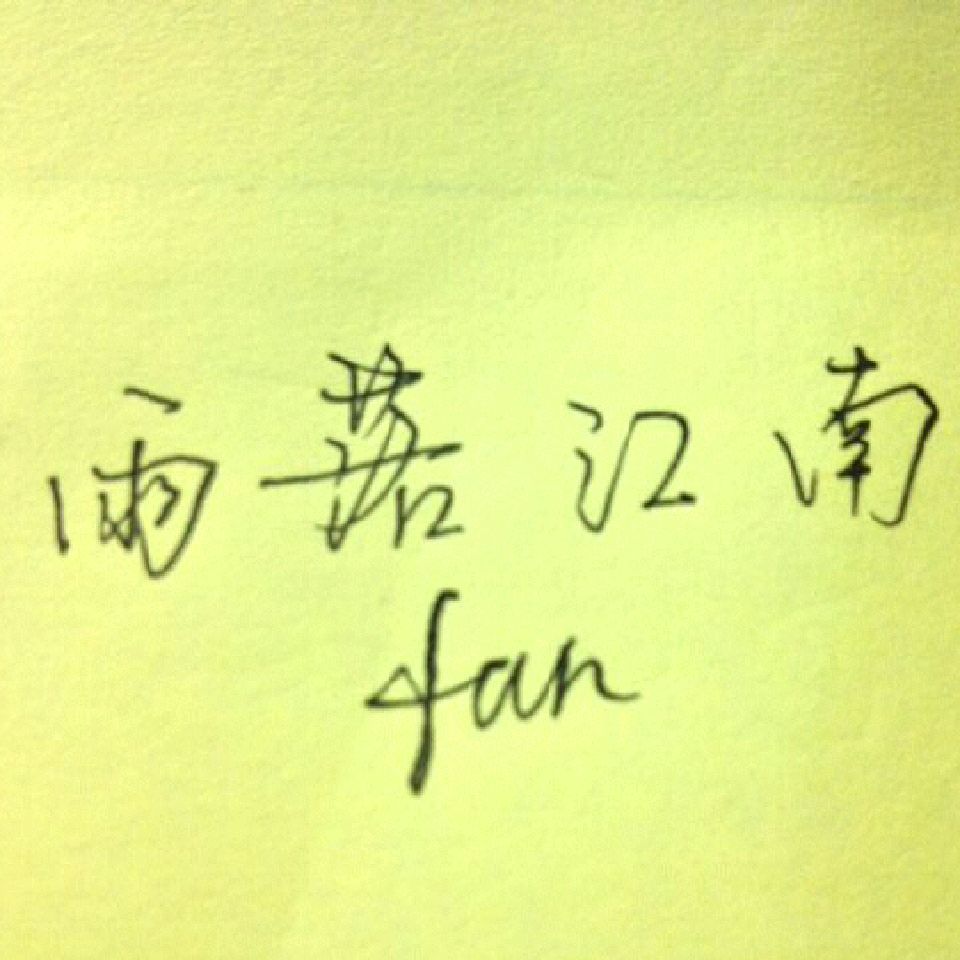 雨落江南
fan